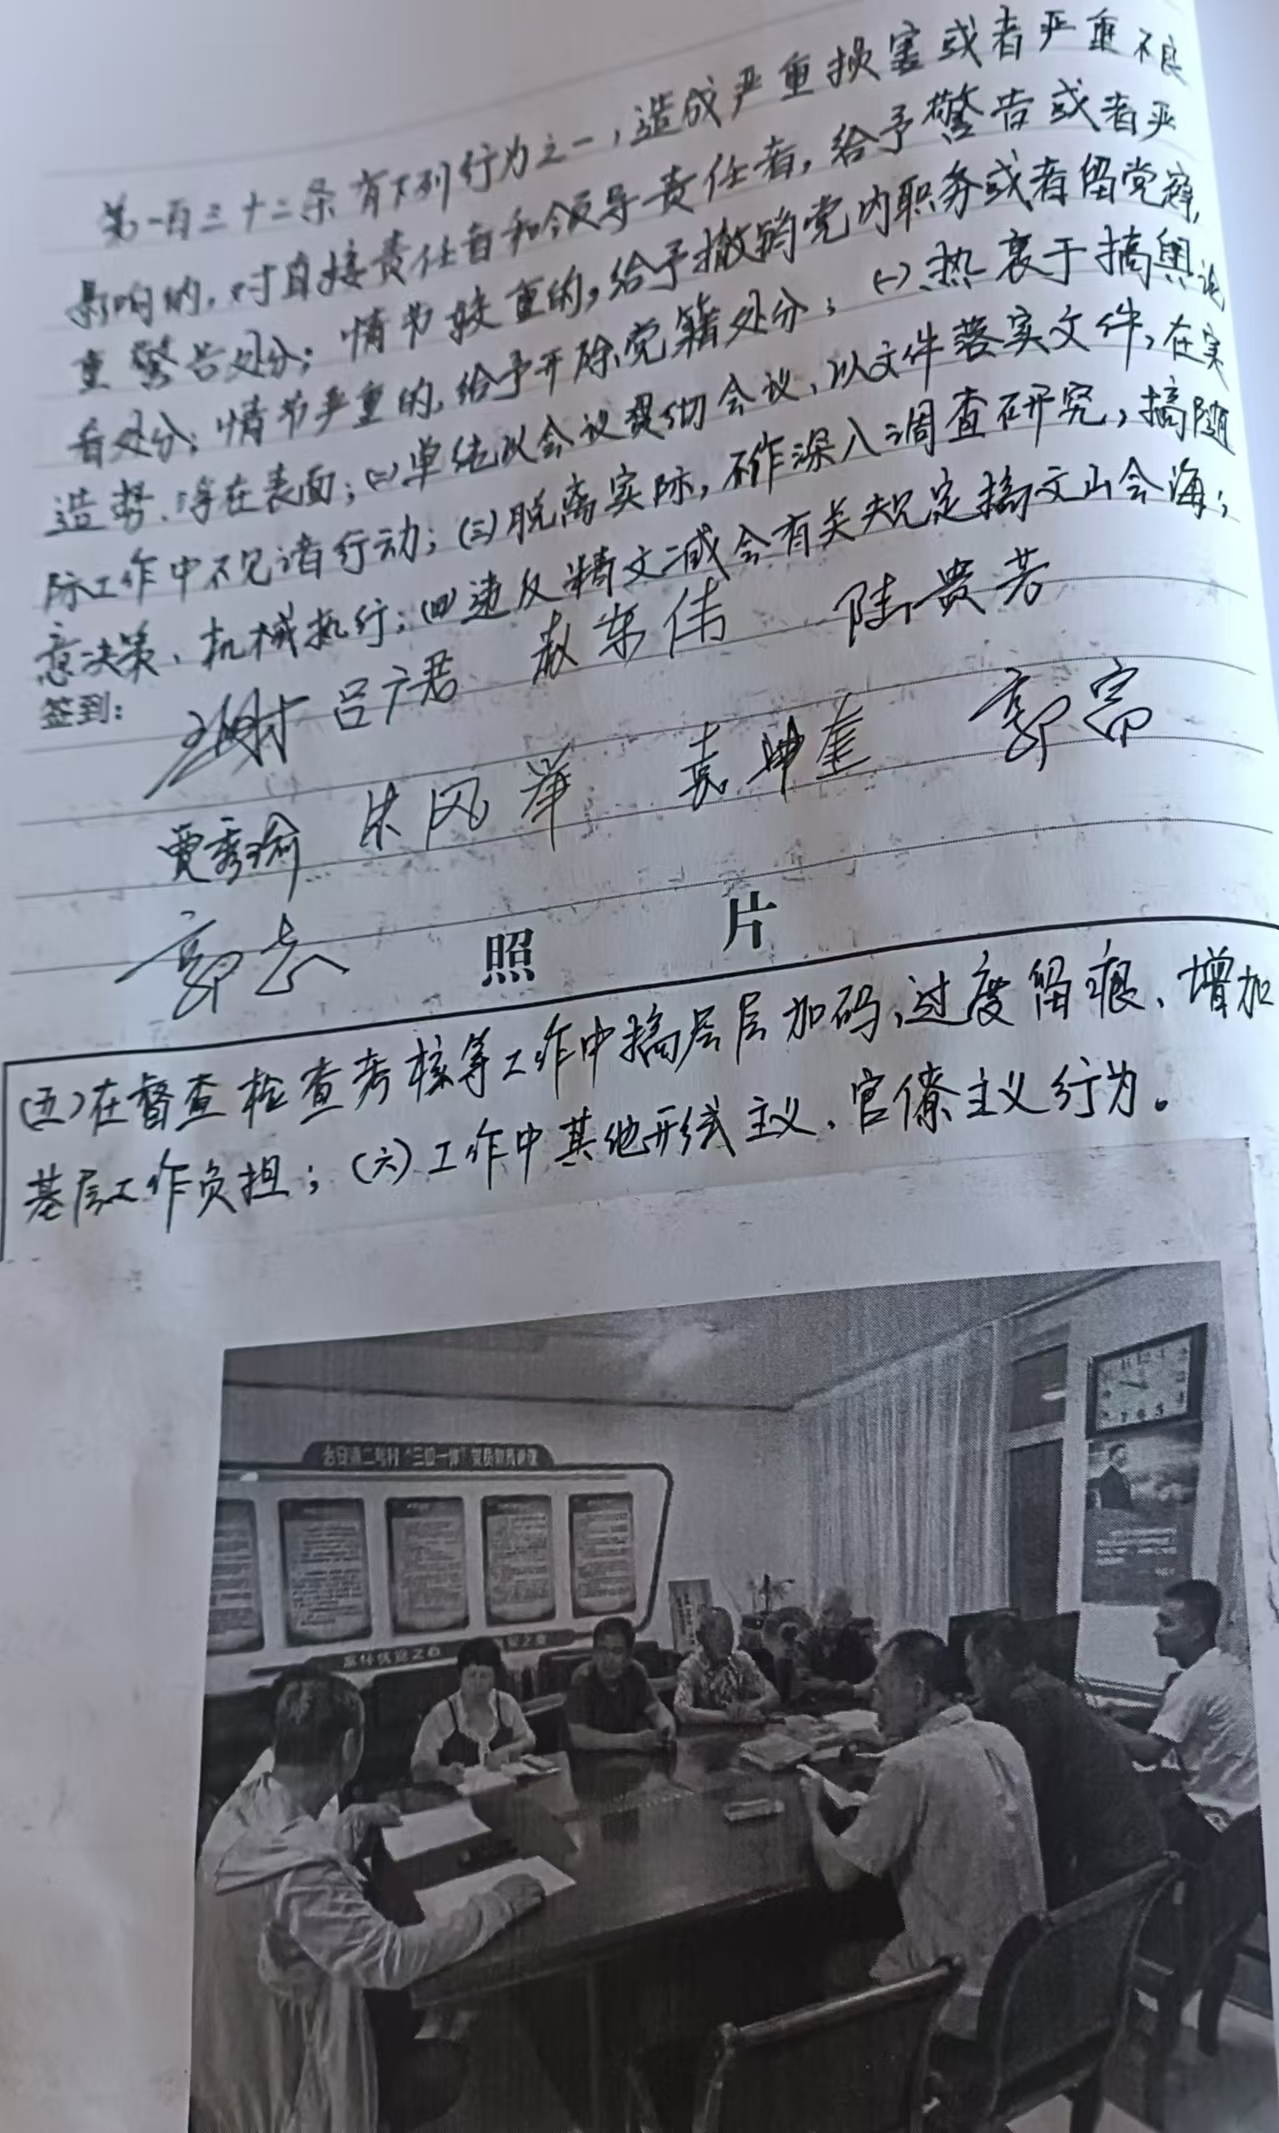 第一百三十二条 有下列行为之一，造成严重损害或者严重不良
影响的，对直接责任者和领导责任者，给予警告或者严
重警告处分；情节较重的，给予撤销党内职务或者留党察
看处分；情节严重的，给予开除党籍处分：(一)热衷于搞舆论
造势、浮在表面；(二)单纯以会议贯彻会议、以文件落实文件，在实
际工作中不见诸行动；(三)脱离实际，不作深入调查研究，搞随
意决策、机械执行；(四)违反精文减会有关规定搞文山会海；
签到：
吕广君 赵东伟 陆贵芳
贾秀瑜 朱风举 袁坤奎 郭富
郭志
照 片
(五)在督查检查考核等工作中搞层层加码、过度留痕、增加
基层工作负担；(六)工作中其他形式主义、官僚主义行为。